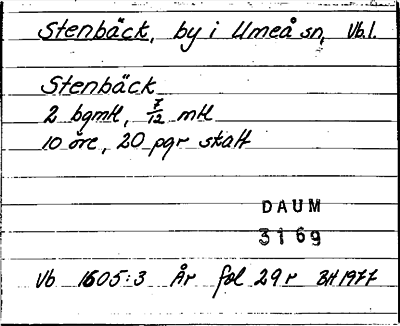 Stenbäck, by i Umeå sn, Vb.l.
Stenbäck
2 bgmtl, 7/12 mtl
10 öre, 20 pgr skatt
DAUM
3169
Vb 1605:3 År fol 29 r BH 1977